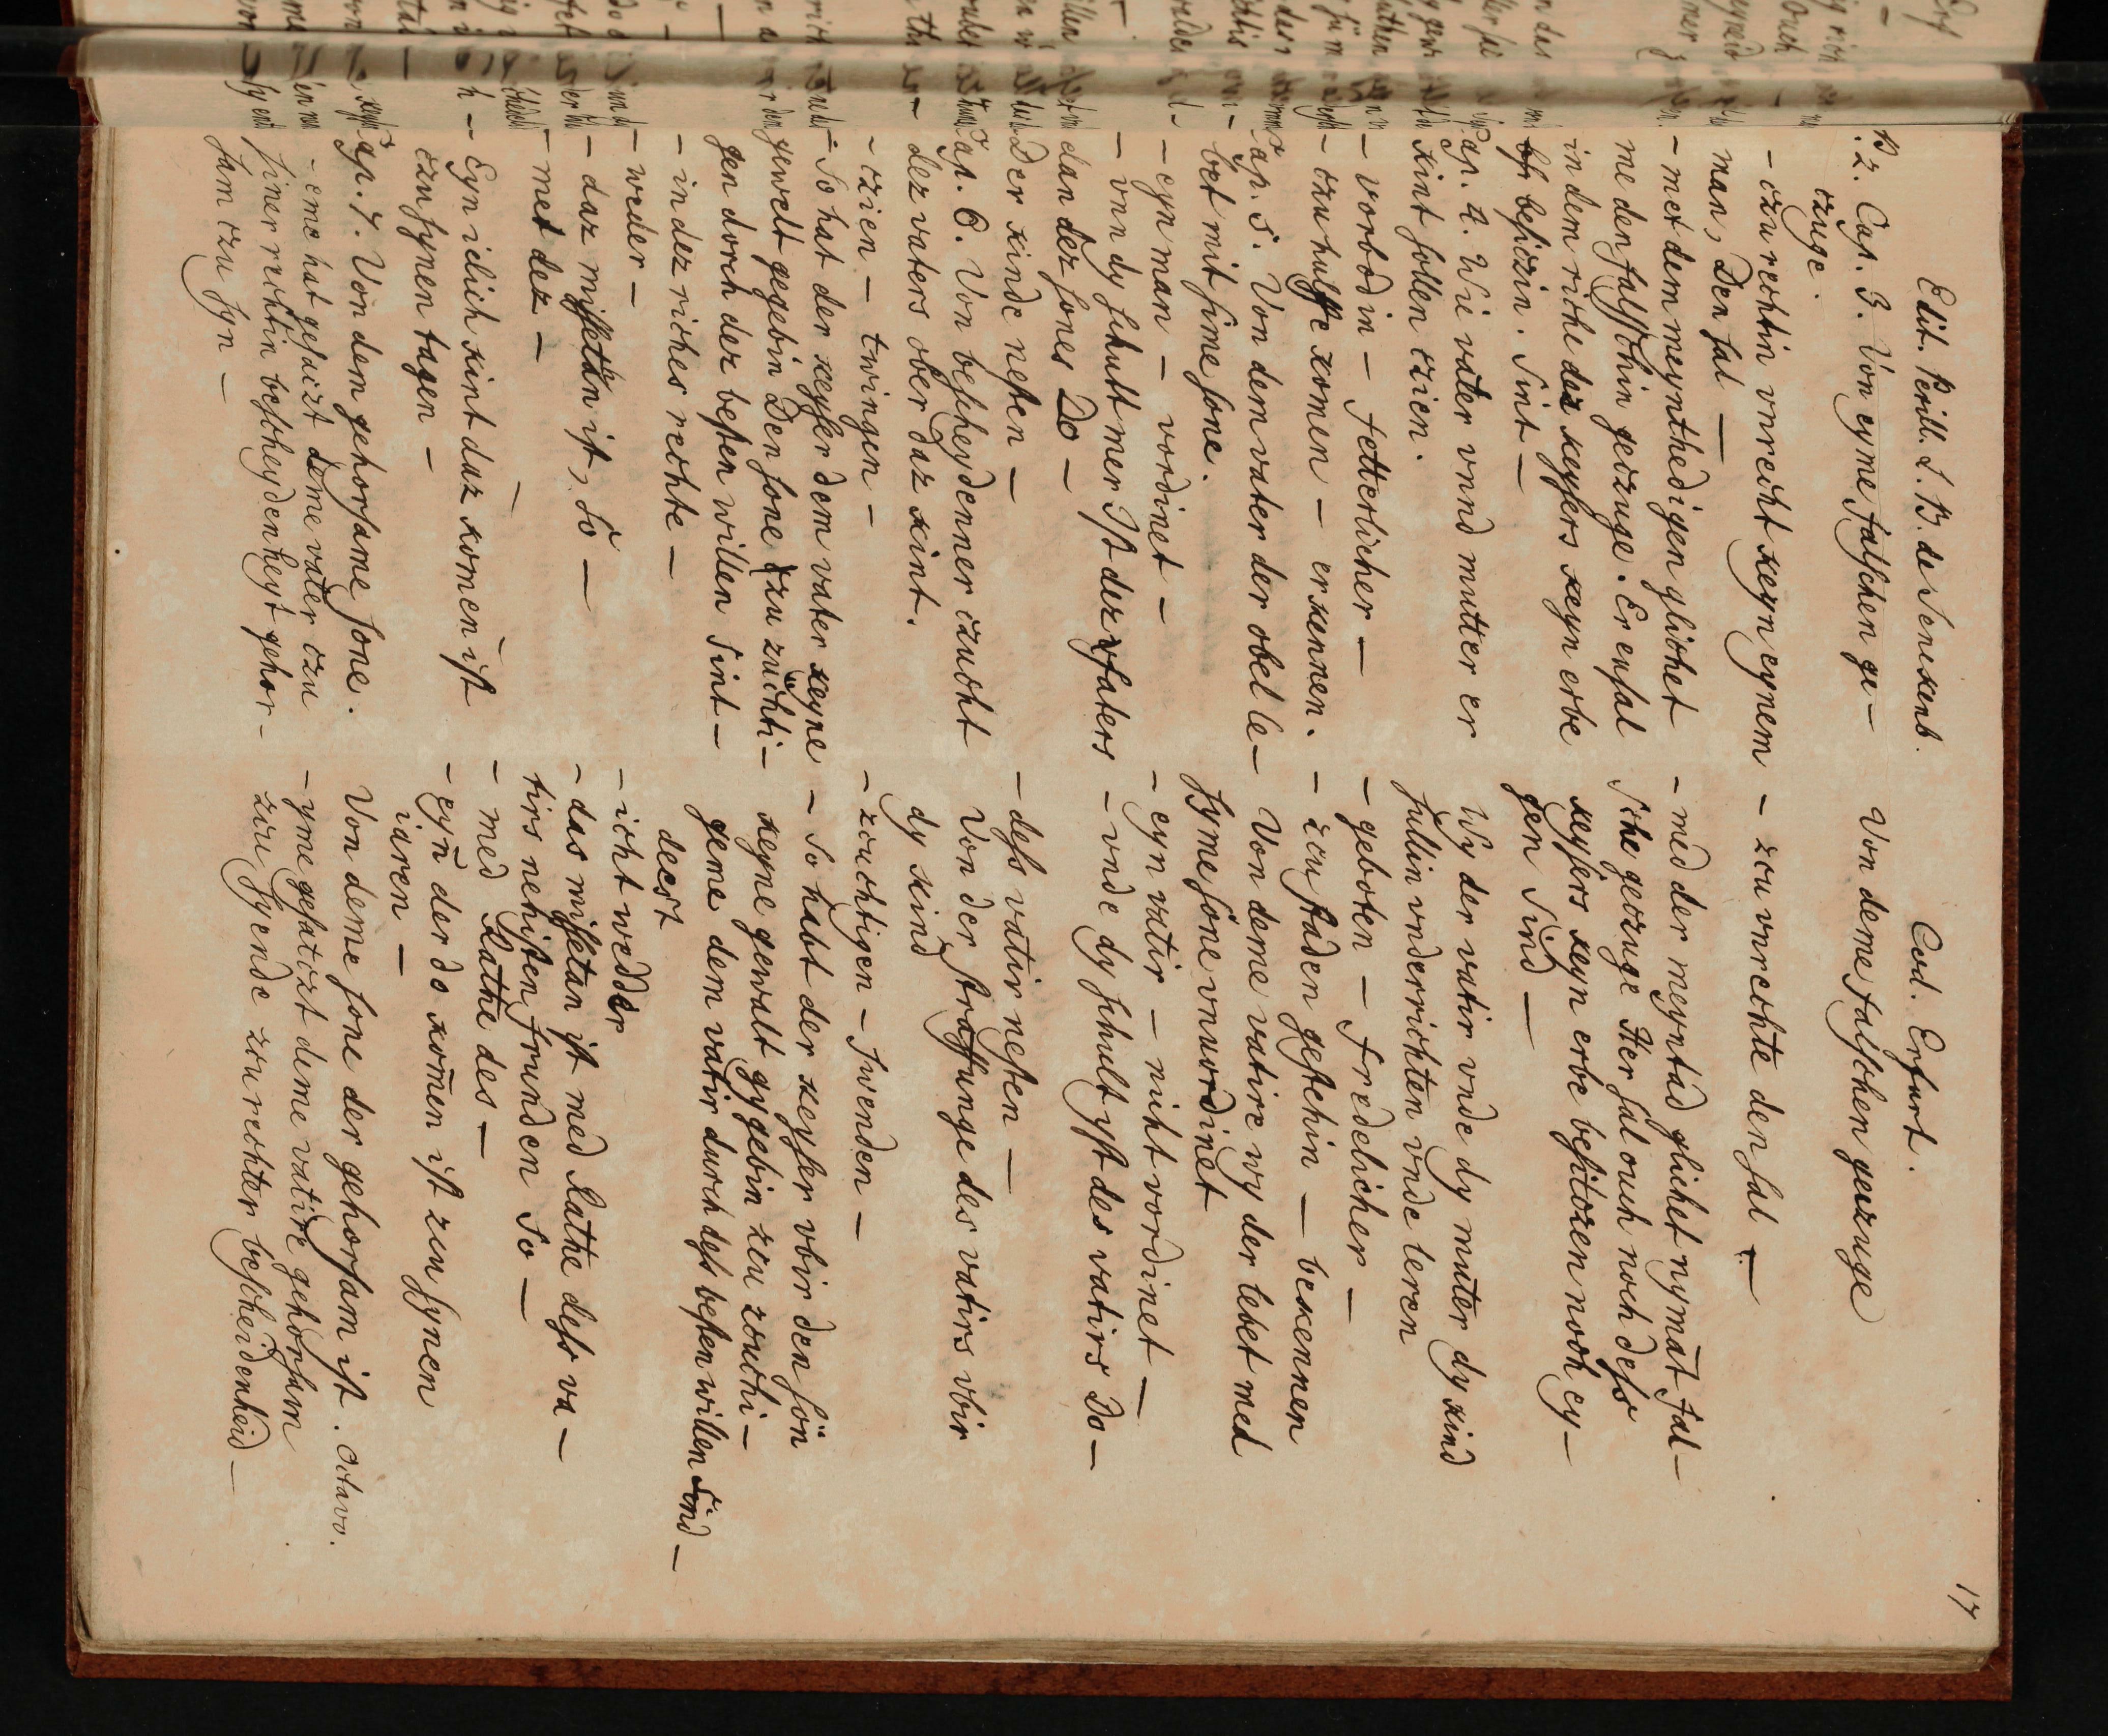 17
Edit. Perill. L. B. de Senckenb.
B. 2. Cap. 3. Von eyme falschen ge-
czuge.
- czu rechtin vnrecht keyn eynem
man, Den sal -
- met dem meynthedigen glichet
me den falsschin geczuge. Er ensal
in dem riche dez keysers keyn erbe
besiczin. Sint -
Cap. 4. Wi vater vnnd mutter er
kint sollen czien.
- vorbodin - fetterlicher -
- czu hulffe komen - erkennen.
Cap. 5. Von dem vater der obel le-
bet mit sime sone.
- eyn man - vordinet -
- vnn dy schult mer Ist dez vaters
dan dez sones Do -
Der kinde nesten -
Cap. 6. Von bescheydenner czucht
dez vaters ober daz kint.
- czien - twingen -
- So hat der keyser dem vater keyne
gewelt gegebin Den sone czu zuchti-
gen dorch dez besten willen Sint -
- in dez riches rechte -
- weder -
- daz missetan ist, So -
- met dez -
- Eyn iclich kint daz komen ist
czu synen tagen -
Cap. 7. Von dem gehorsame sone.
- eme hat gesaczt deme vater czu
siner rechtin bescheydenheyt gehor-
sam czu syn -
Cod. Erfurt.
Von deme falschen geczuge
- zcu vnrechte den sal -
- med der meyntad glichet nymāt fal-
sche geczuge Her sal ouch noch dess
keysers keyn erbe besitczen noch ey-
gen Sind -
Wy der vatir vnde dy muter dy kind
sullin vnderrichten vnde leren
- geboten - fredelicher -
- zcu staden gestehin - bekennen
Von deme vatire wy der lebet med
syme sone vnuordinet
- eyn vatir - nicht vordinet -
- vnde dy schult yst des vatirs Do -
- dess vatir nesten -
Von der straffunge des vatirs vbir
dy kind
- zcuchtigen - swenden -
- So habt der keyser vbir den sōn
keyne gewalt gygebin zcu zcuchi-
geme dem vatir durch dess besten willen Sind -
deest
- icht wedder
- das missetan ist med Rathe dess va-
tirs nehisten frunden So -
- med Rathe des -
- eyn der do komen ist zcu synen
iaren -
Von deme sone der gehorsam ist. Octavo.
- yme gesatczt deme vatire gehorsam
zcu syende zcu rechter bescheidenheid -